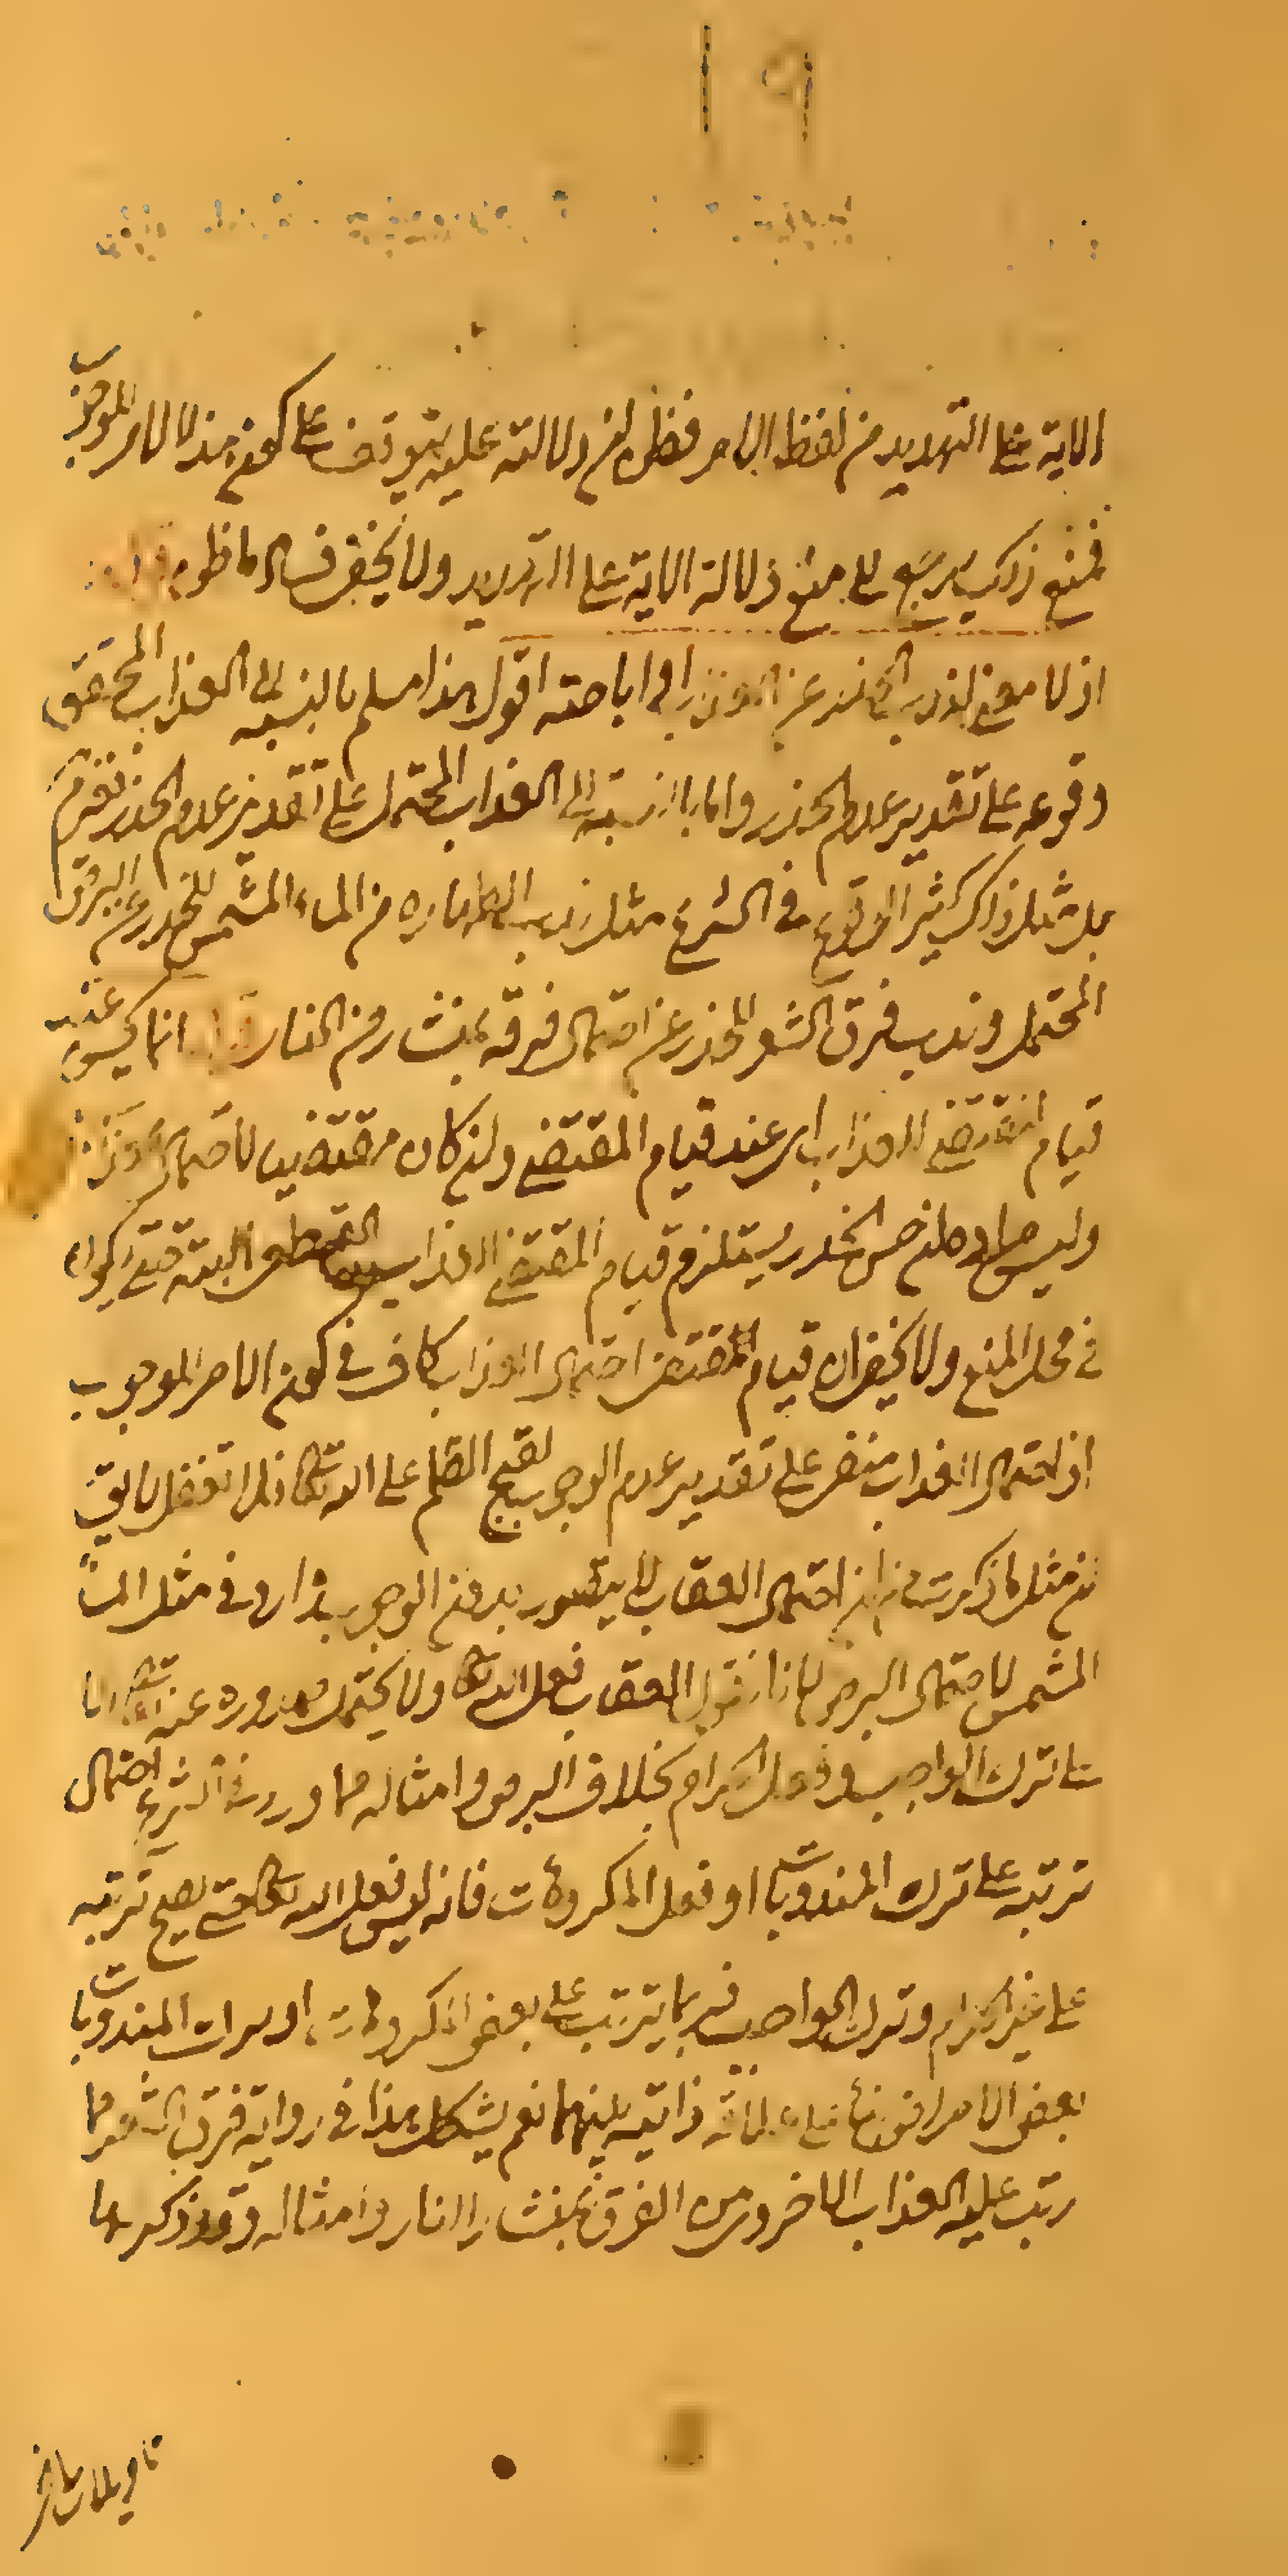 الاية على التهديد من لفظ الامر فظاهر ان دلالته عليه يتوقف على كون هذا الامر للوجوب
فمنع ذلك يرجع الى منع دلالة الاية على التهديد ولا يخفى فساده قوله
اذ لا معنى لندب الحذر عن العذاب او اباحته اقول هذا مسلم بالنسبه الى العذاب المحقق
وقوعه على تقدير عدم الحذر واما بالنسبة الى العذاب المحتمل على تقدير عدم الحذر
بل مثل ذلك كثير الوقوع في الشرع مثل ندب الطهاره من الماء المشمس للحذر عن البرص
المحتمل وندب فرق الشعر للحذر عن احتمال فرقه بمنشار من النار قوله انما يحسن عند
قيام المقتضي العذاب اى عند قيام المقتضي وان كان مقتضيا لاحتمال العذاب
وليس حسن الحذر يستلزم قيام المقتضي العذاب القطعى البته حتى يكون
في محل المنع ولا يخفى ان قيام المقتضى احتمال العذاب كاف في كون الامر للوجوب
اذ احتمال العذاب منتف على تقدير عدم الوجوب لقبح الظلم على الله تعالى
مثل ما ذكرت من ان احتمال العقاب لا يتصور بدون الوجوب وارد في مثل الماء
المشمس لاحتمال البرص لانا نقول العقاب فعل الله تعالى ولا يحتمل صدوره عنه تعالى الا
على ترك الواجب وفعل الحرام بخلاف البرص وامثاله مما ورد في الشرع احتمال
ترتبه على ترك المندوبات او فعل المكروهات فانه ليس فعل الله تعالى حتى يقبح ترتبه
على غير الحرام وترك الواجب فربما يترتب على بعض المكروهات او ترك المندوبات
بعض الامراض ذاتيه بينهما نعم يشكل هذا في رواية فرق الشعر مما
رتب عليه العذاب الاخروى من الفرق بمنشار النار وامثاله وقد ذكر لها